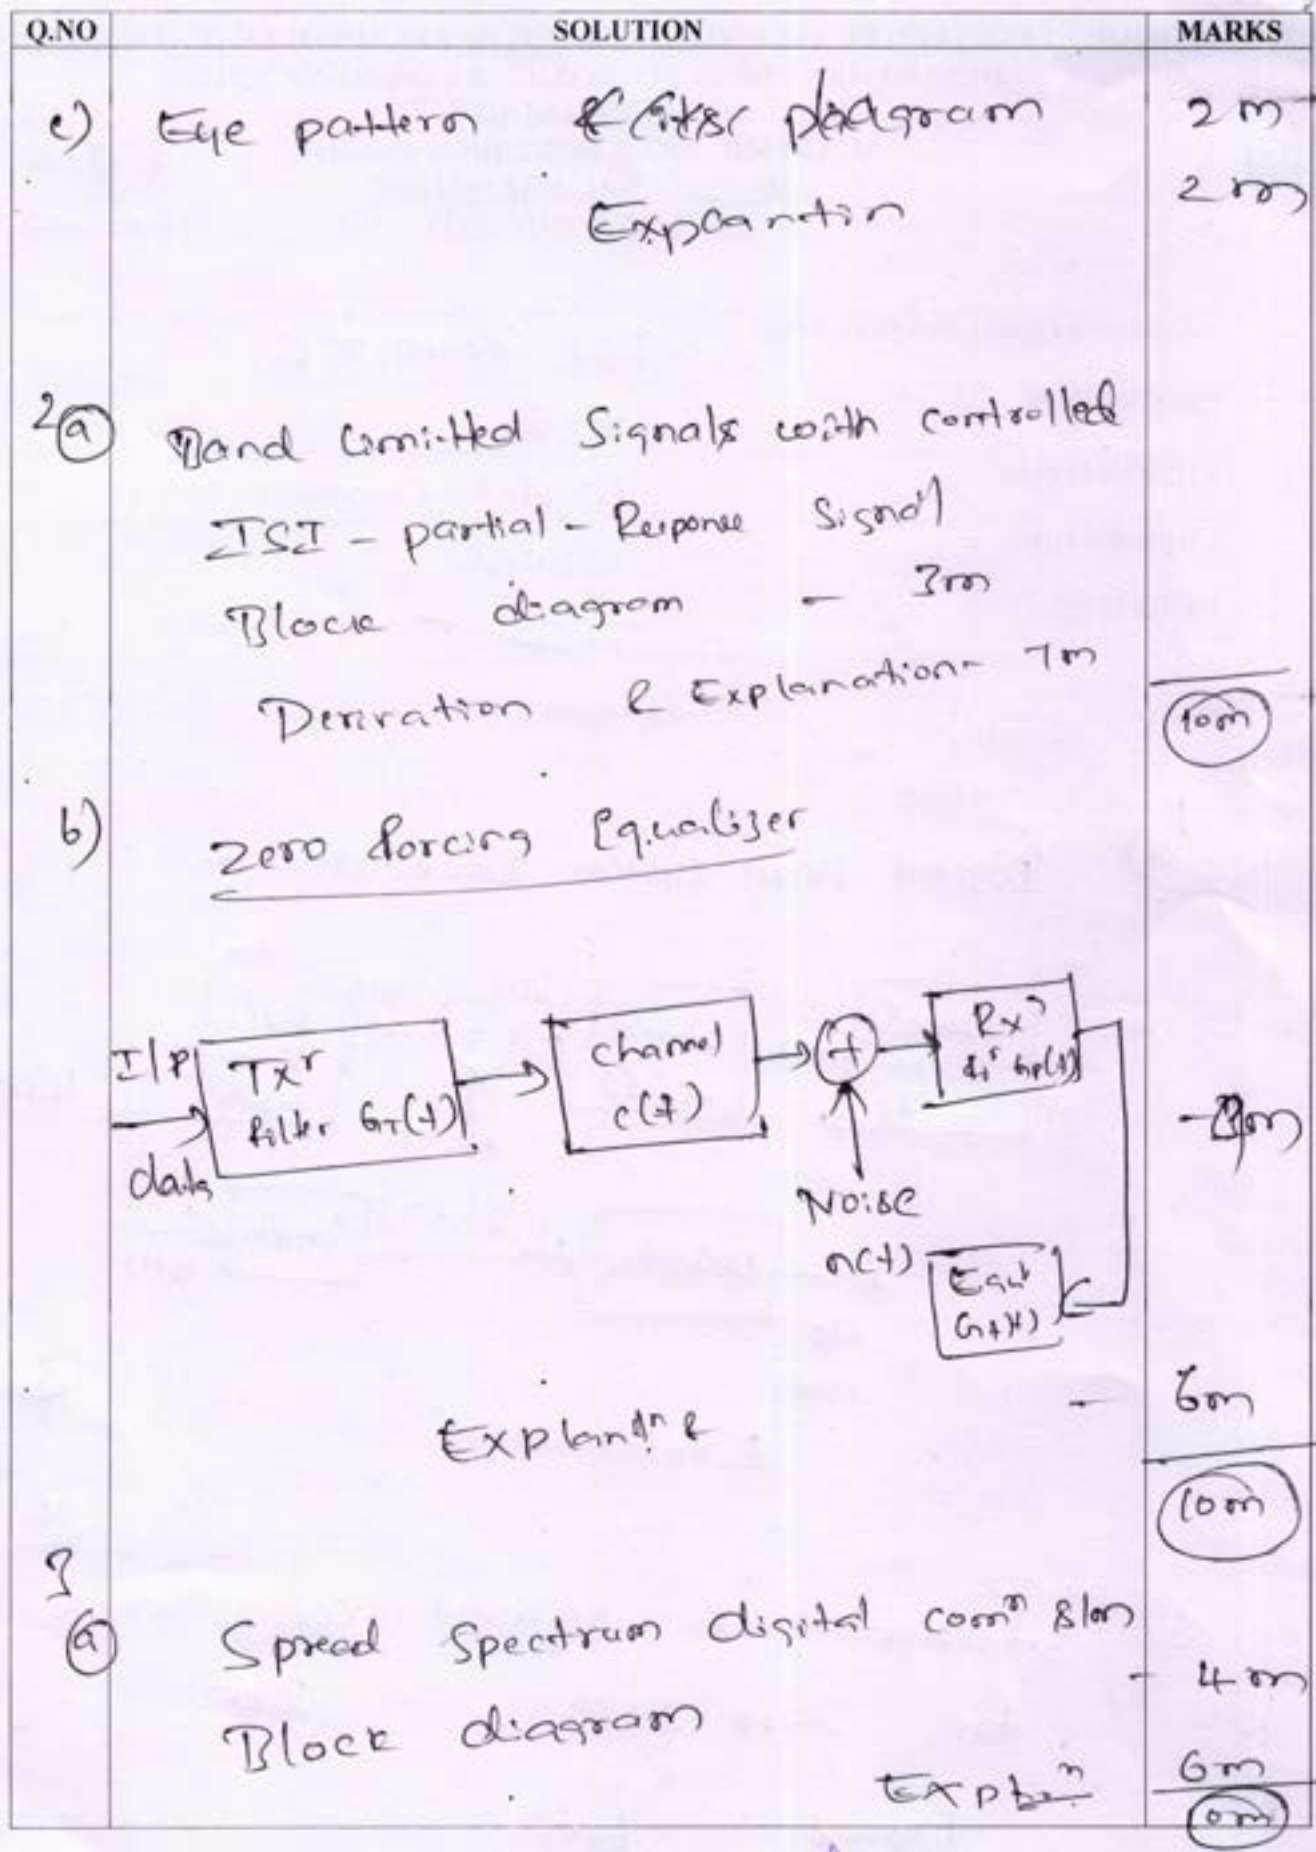 Q.NO SOLUTION MARKS
c) Eye pattern diagram 2m
Expcantin 2m
2 a Band Limitted Signals with controlled
ISI - partial - Response Signal
Block diagram - 3m
Derivation & Explanation - 7m
10m
b) Zero forcing Equalizer
I/P data
Txr filter GT(f)
channel c(f)
+
Noise n(t)
Rxr
Equ
Explantn & - 6m
10m
3
a Spread Spectrum digital comn s/m
Block diagram - 4m
6m